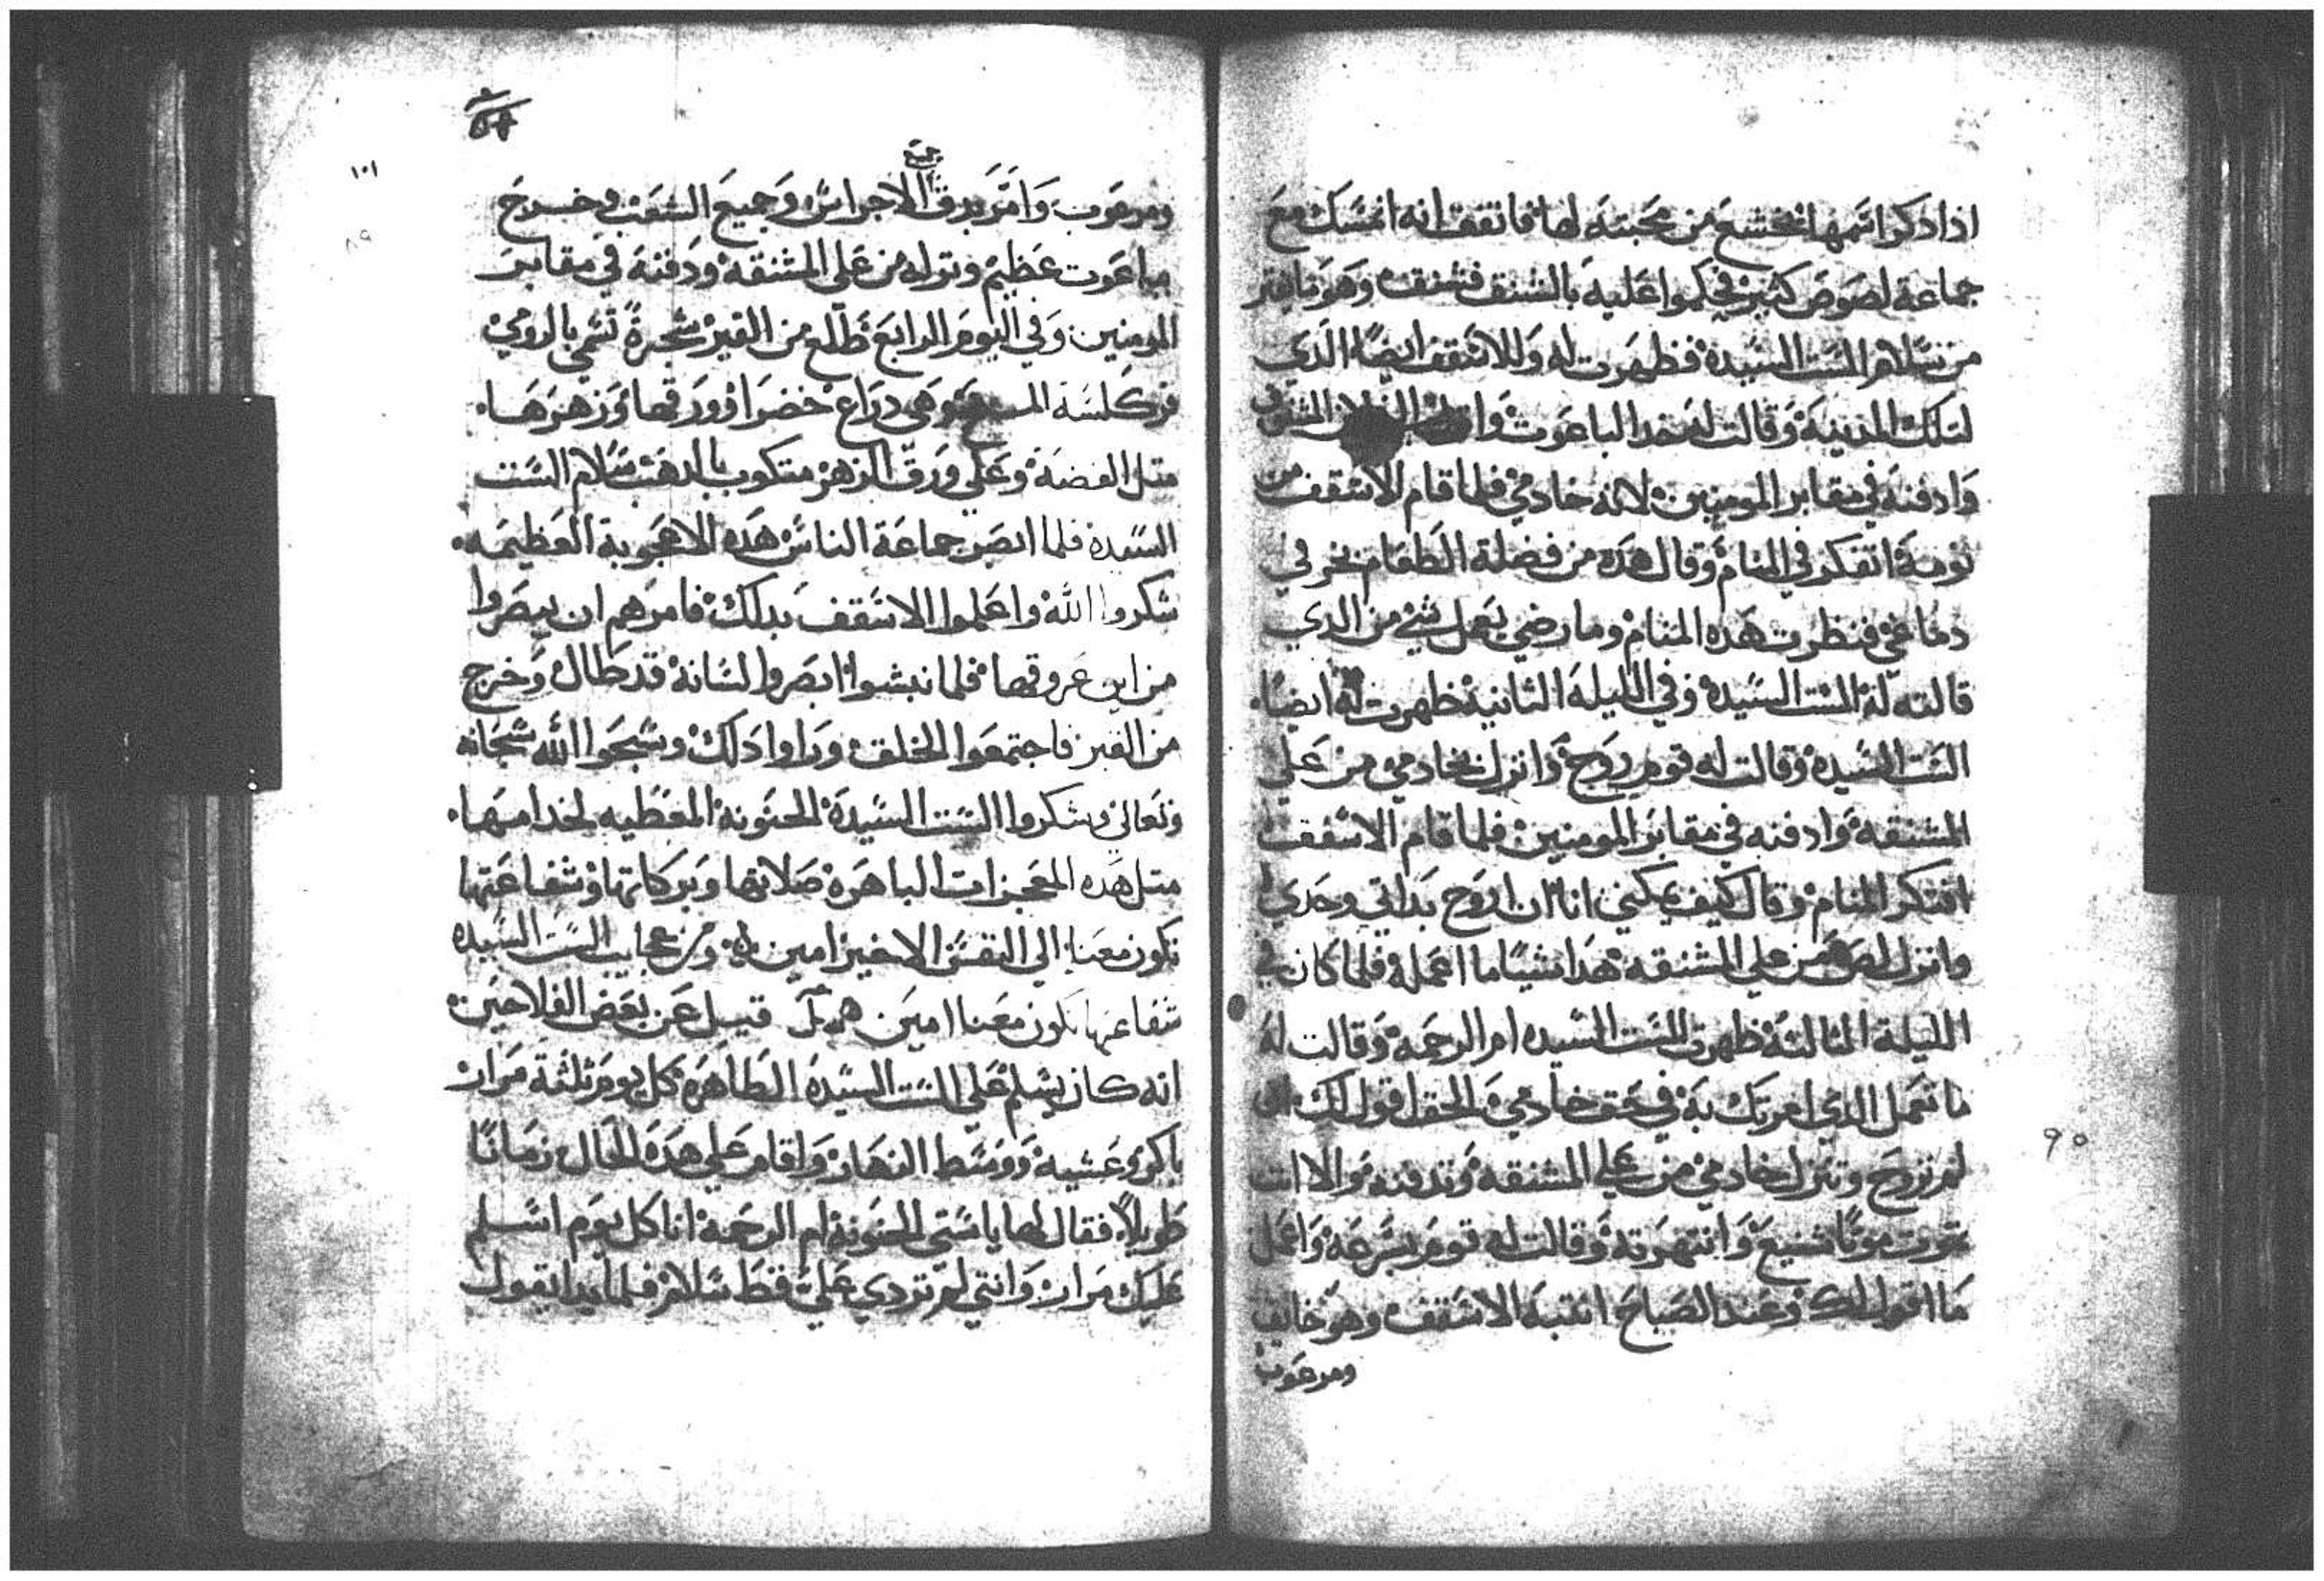 اذا دكر اسمها انخشع من محبته لها فاتفق انه انمسك مع
جماعة لصوص كتير فحكموا عليه بالشنق فشنق وهو ما يفتر
من سلام الست السيده فظهرت له وللاسقف ايضا الذي
لتلك المدينة وقالت له خد الباعوت المشنوق
وادفنه في مقابر المومنين لانه خادمي فلما قام الاسقف من
نومه اتفكر في المنام وقال هده من فضلة الطعام بخر في
دماغي فنظرت هده المنام وما رضي يعمل شي من الدي
قالته له الست السيده وفي الليلة التانية ظهرت له ايضا
الست السيده وقالت له قوم روح وانزل بخادمي من علي
المشنقه وادفنه في مقابر المومنين فلما قام الاسقف
افتكر المنام وقال كيف يمكني انا ان اروح بداتي وحدي
وانزل لص من علي المشنقه هدا شيا ما اعمله فلما كان في
الليلة التالتة ظهرت الست السيده ام الرحمه وقالت له
ما تعمل الدي امرتك به في حق خادمي الحق اقول لك ان
لم تروح وتنزل خادمي من علي المشنقه وتدفنه والا انت
تموت موتا شنيع وانتهرته وقالت له قوم بسرعه واعمل
ما اقول لك وعند الصباح انتبه الاسقف وهو خايف
ومرعوب
١٠١
جميع
ومرعوب وامر بدق الاجراس وجميع الشعب وخرج
بباعوت عظيم ونزله من علي المشنقه ودفنه في مقابر
المومنين وفي اليوم الرابع طلع من القبر شجرة تسمي بالرومي
وهي دراع خضرا وورقها وزهرها
متل الفضة وعلي ورق الزهر متكوب بالدهب سلام الست
السيده فلما ابصر جماعة الناس هده الاعجوبة العظيمه
شكروا الله واعلموا الاسقف بدلك فامرهم ان يبصروا
من اين عروقها فلما نبشوا ابصروا لسانه قد طال وخرج
من القبر فاجتمعوا الخلق وراوا دلك وسبحوا الله سبحانه
وتعالي وشكروا الست السيدة الحنونة المعطيه لخدامها
متل هده المعجزات الباهرة صلاتها وبركاتها وشفاعتها
تكون معنا الي النفس الاخير امين ومن عجايب الست السيده
شفاعتها تكون معنا امين قيل عن بعض الفلاحين
انه كان يسلم علي الست السيدة الطاهرة كل يوم تلتة مرار
باكر وعشيه ووسط النهار واقام علي هده الحال زمانا
طويلا فقال لها يا ستي الحنونة ام الرحمة انا كل يوم اسلم
عليك مرار وانتي لم تردي علي قط سلام فلما بدا يقول
٩٥